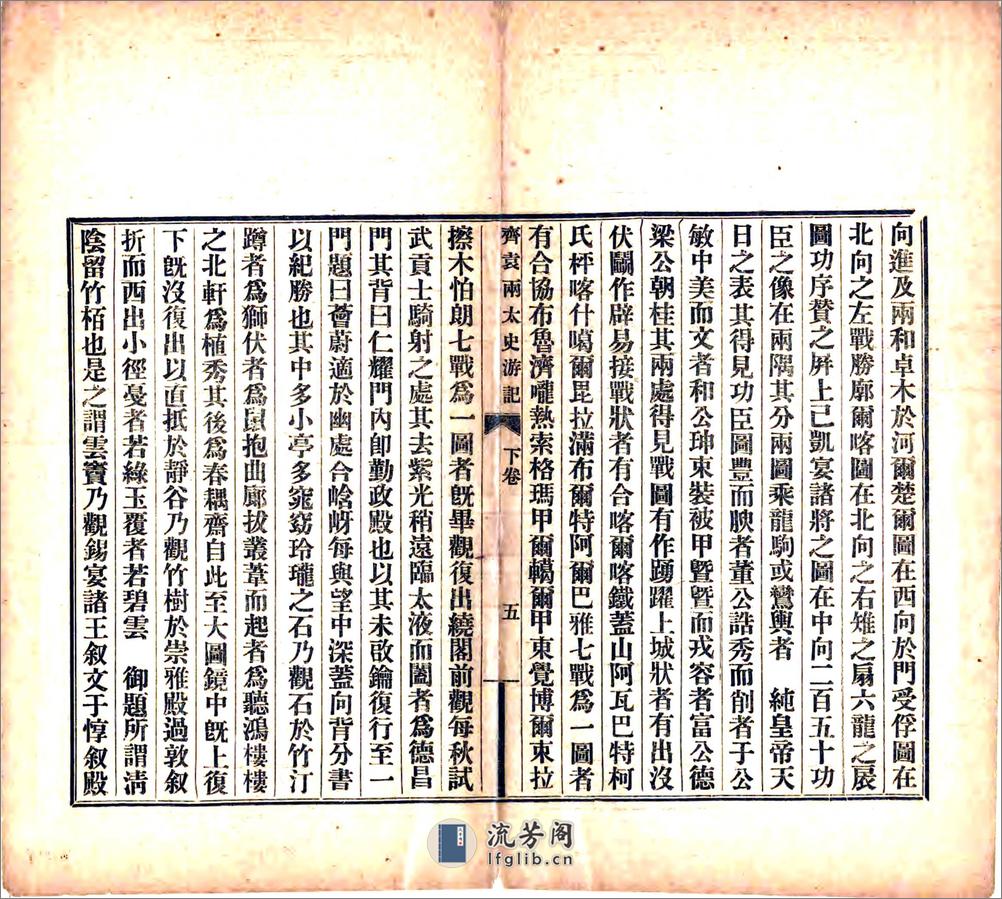 向進及兩和卓木於河爾楚爾圖在西向於門受俘圖在
北向之左戰勝廓爾喀圖在北向之右雉之扇六龍之扆
圖功序贊之屏上已凱宴諸將之圖在中向二百五十功
臣之像在兩隅其分兩圖乘龍駒或鸞輿者　純皇帝天
日之表其得見功臣圖豐而腴者董公誥秀而削者于公
敏中美而文者和公珅束裝被甲暨暨而戎容者富公德
梁公朝桂其兩處得見戰圖有作踴躍上城狀者有出沒
伏鬭作辟易接戰狀者有合喀爾喀鐵蓋山阿瓦巴特柯
氏枰喀什噶爾毘拉滿布爾特阿爾巴雅七戰爲一圖者
有合協布魯濟嚨熱索格瑪甲爾轕爾甲東覺博爾東拉
齊袁兩太史游記　下卷　五
擦木怕朗七戰爲一圖者旣畢觀復出繞閣前觀每秋試
武貢士騎射之處其去紫光稍遠臨太液而闔者爲德昌
門其背曰仁耀門內卽勤政殿也以其未啟鑰復行至一
門題曰薈蔚適於幽處合崯岈每與望中深蓋向背分書
以紀勝也其中多小亭多窕窈玲瓏之石乃觀石於竹汀
蹲者爲獅伏者爲鼠抱曲廊拔叢葦而起者爲聽鴻樓樓
之北軒爲植秀其後爲春耦齋自此至大圖鏡中旣上復
下旣沒復出以直抵於靜谷乃觀竹樹於崇雅殿過敦叙
折而西出小徑戞者若綠玉覆者若碧雲　御題所謂淸
陰留竹栢也是之謂雲竇乃觀錫宴諸王叙文于惇叙殿
流芳阁
lfglib.cn